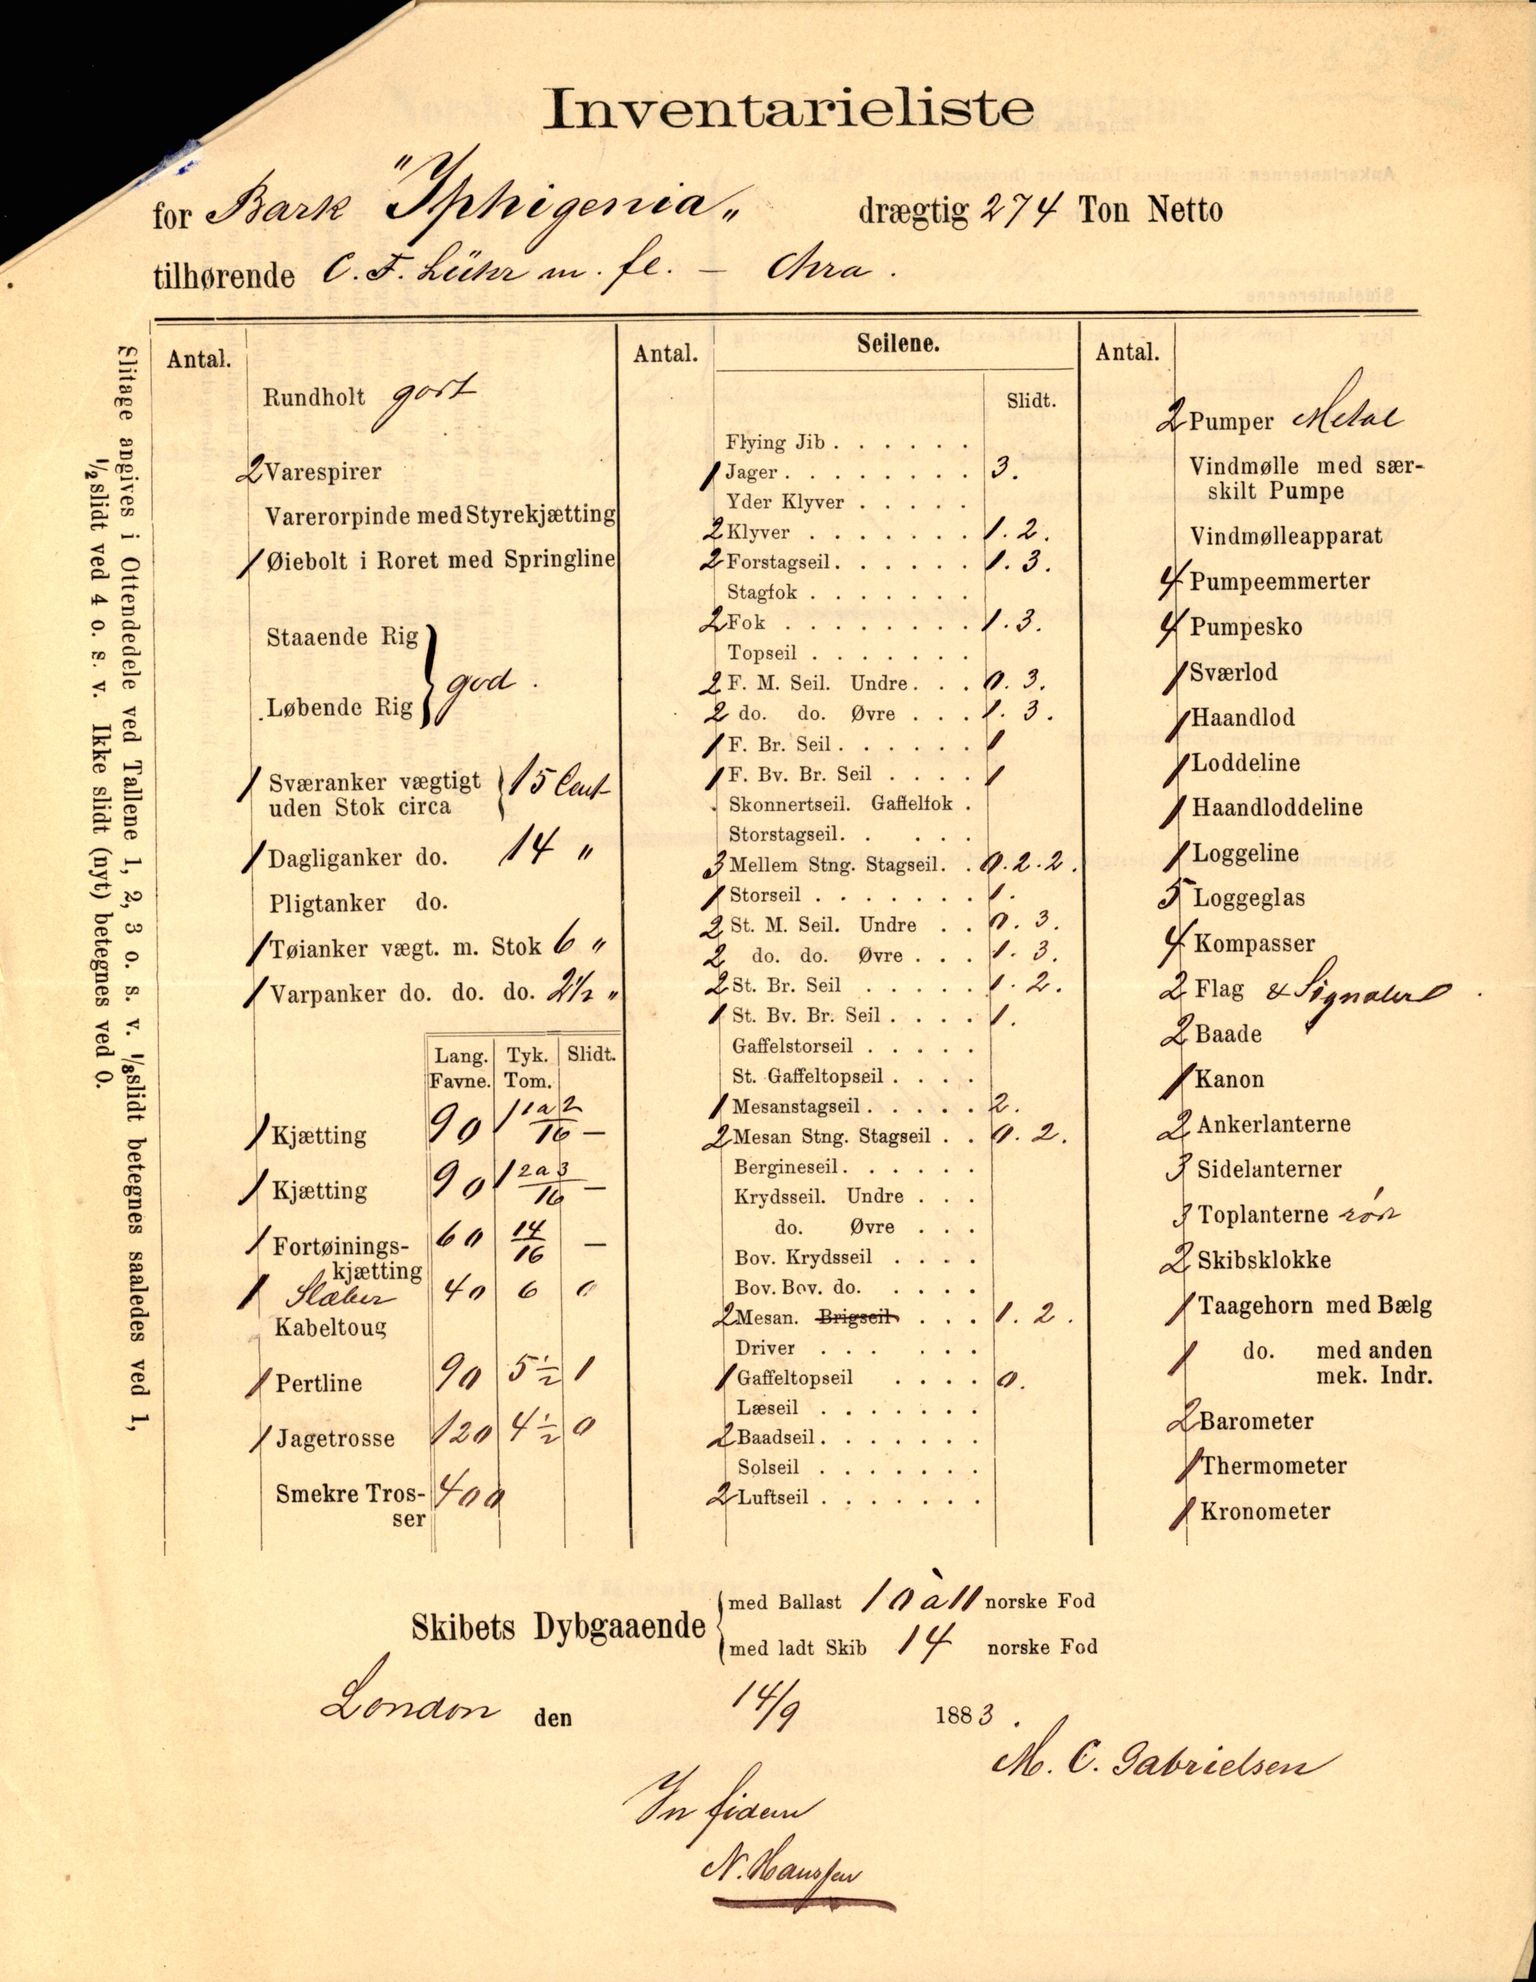 Inventarieliste
for Bark "Iphigenia" drægtig 274 Ton Netto
tilhørende C. F. Lühr m. fl. – Chra.
Slitage angives i Ottendedele ved Tallene 1, 2, 3 o. s. v. 1/8 slidt betegnes saaledes ved 1,
1/2 slidt ved 4 o. s. v. Ikke slidt (nyt) betegnes ved 0.
Antal.
Rundholt godt
2 Varespirer
Varerorpinde med Styrekjætting
1 Øiebolt i Roret med Springline
Staaende Rig
god.
Løbende Rig
1 Sværanker vægtigt
uden Stok circa 15 Cent
1 Dagliganker do. 14 "
Pligtanker do.
1 Tøianker vægt. m. Stok 6 "
1 Varpanker do. do. do. 2 1/2 "
Lang. Tyk. Slidt.
Favne. Tom.
1 Kjætting 90 1 1a2/16 –
1 Kjætting 90 1 2a3/16 –
1 Fortøinings- 60 14/16 –
kjætting
1 Slæber 40 6 0
Kabeltoug
1 Pertline 90 5 1/2 1
1 Jagetrosse 120 4 1/2 0
Smekre Tros- 400
ser
Antal. Seilene.
Slidt.
Flying Jib . . . . . .
1 Jager . . . . . . . . 3.
Yder Klyver . . . . .
2 Klyver . . . . . . . 1. 2.
2 Forstagseil . . . . . . 1. 3.
Stagfok . . . . . . .
2 Fok . . . . . . . . 1. 3.
Topseil . . . . . . .
2 F. M. Seil. Undre . . . 0. 3.
2 do. do. Øvre . . . 1. 3.
1 F. Br. Seil . . . . . . 1
1 F. Bv. Br. Seil . . . . 1
Skonnertseil. Gaffelfok .
Storstagseil. . . . .
3 Mellem Stng. Stagseil. . 0. 2. 2.
1 Storseil . . . . . . . 1.
2 St. M. Seil. Undre . . 0. 3.
2 do. do. Øvre . . . 1. 3.
2 St. Br. Seil . . . . . 1. 2.
1 St. Bv. Br. Seil . . . . 1.
Gaffelstorseil . . . . .
St. Gaffeltopseil . . . .
1 Mesanstagseil . . . . . 2.
2 Mesan Stng. Stagseil . . 0. 2.
Bergineseil . . . . . .
Krydsseil. Undre . . .
do. Øvre . . .
Bov. Krydsseil . . . .
Bov. Bov. do. . . . .
2 Mesan. Brigseil . . . 1. 2.
Driver . . . . . .
1 Gaffeltopseil . . . . 0.
Læseil . . . . . . .
2 Baadseil . . . . . . .
Solseil . . . . . . .
2 Luftseil . . . . . . .
Antal.
2 Pumper Metal
Vindmølle med sær-
skilt Pumpe
Vindmølleapparat
4 Pumpeemmerter
4 Pumpesko
1 Sværlod
1 Haandlod
1 Loddeline
1 Haandloddeline
1 Loggeline
5 Loggeglas
4 Kompasser
2 Flag & Signaler
2 Baade
1 Kanon
2 Ankerlanterne
3 Sidelanterner
3 Toplanterne rød
2 Skibsklokke
1 Taagehorn med Bælg
1 do. med anden
mek. Indr.
2 Barometer
1 Thermometer
1 Kronometer
Skibets Dybgaaende med Ballast 10 à 11 norske Fod
med ladt Skib 14 norske Fod
London den 14/9 1883.
M. C. Gabrielsen
In fidem
N. Hanssen